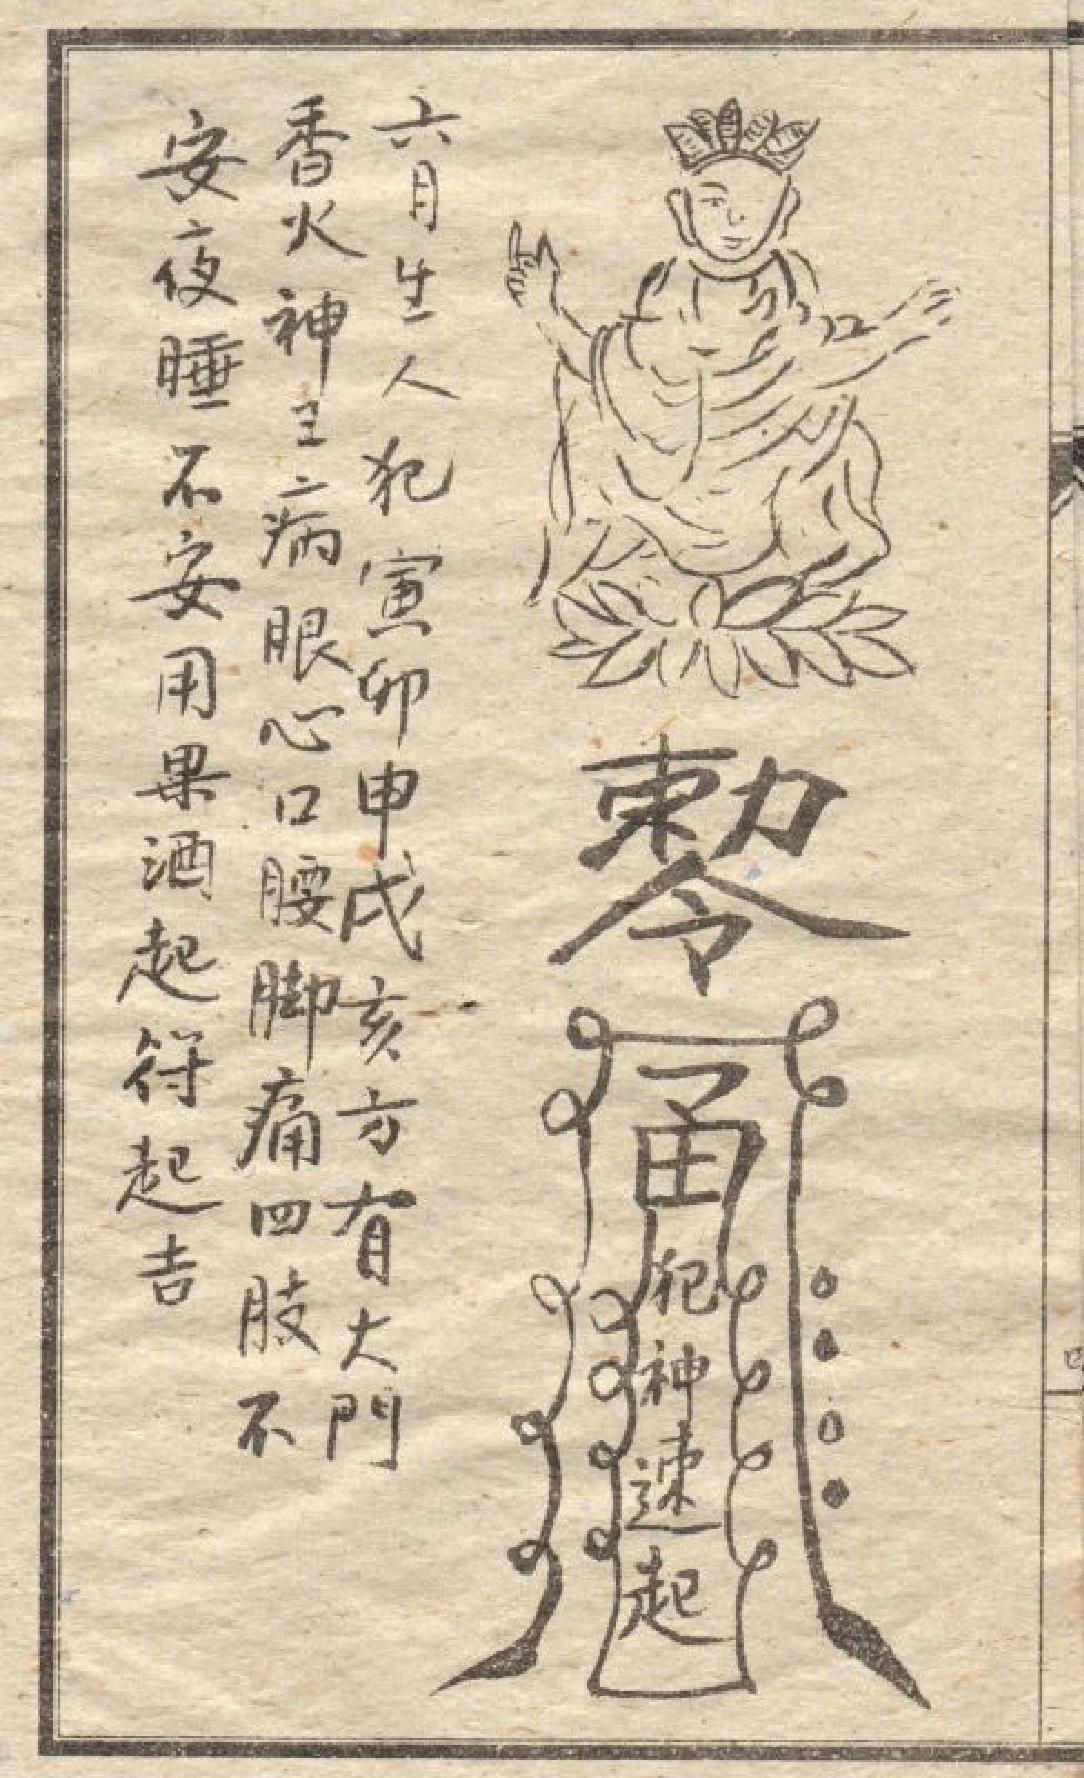 勅令
犯神速起
六月生人犯寅卯申戌亥方有大門
香火神主病眼心口腰脚痛四肢不
安夜睡不安用果酒起符起吉